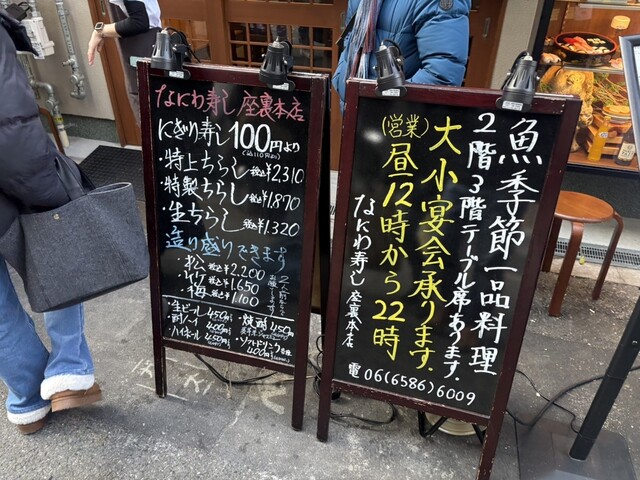 なにわ寿し 座裏本店
にぎり寿し100円より
(税込110円より)
・特上ちらし 税込¥2,310
・特製ちらし 税込¥1,870
・生ちらし 税込¥1,320
造り盛りできます
・松 税込¥2,200
・竹 税込¥1,650
・梅 税込¥1,100
・生ビール 450円
・酎ハイ 400円
・焼酎 450円
・ソフトドリンク各種 400円
魚季節一品料理
2階3階テーブル席あります.
大小宴会承ります.
(営業)昼12時から22時
なにわ寿し 座裏本店
電 06(6586)6009